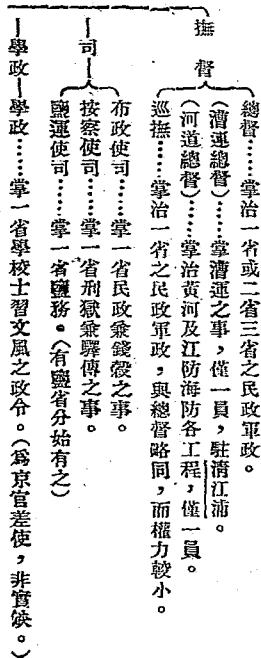 督撫
總督……掌治一省或二省三省之民政軍政。
(漕運總督)……掌漕運之事,僅一員,駐清江浦。
(河道總督)……掌治黃河及江防海防各工程,僅一員。
巡撫……掌治一省之民政軍政,與總督略同,而權力較小。
司
布政使司……掌一省民政兼錢穀之事。
按察使司……掌一省刑獄兼驛傳之事。
鹽運使司……掌一省鹽務。(有鹽省分始有之)
學政
學政……掌一省學校士習文風之政令。(爲京官差使,非實缺。)